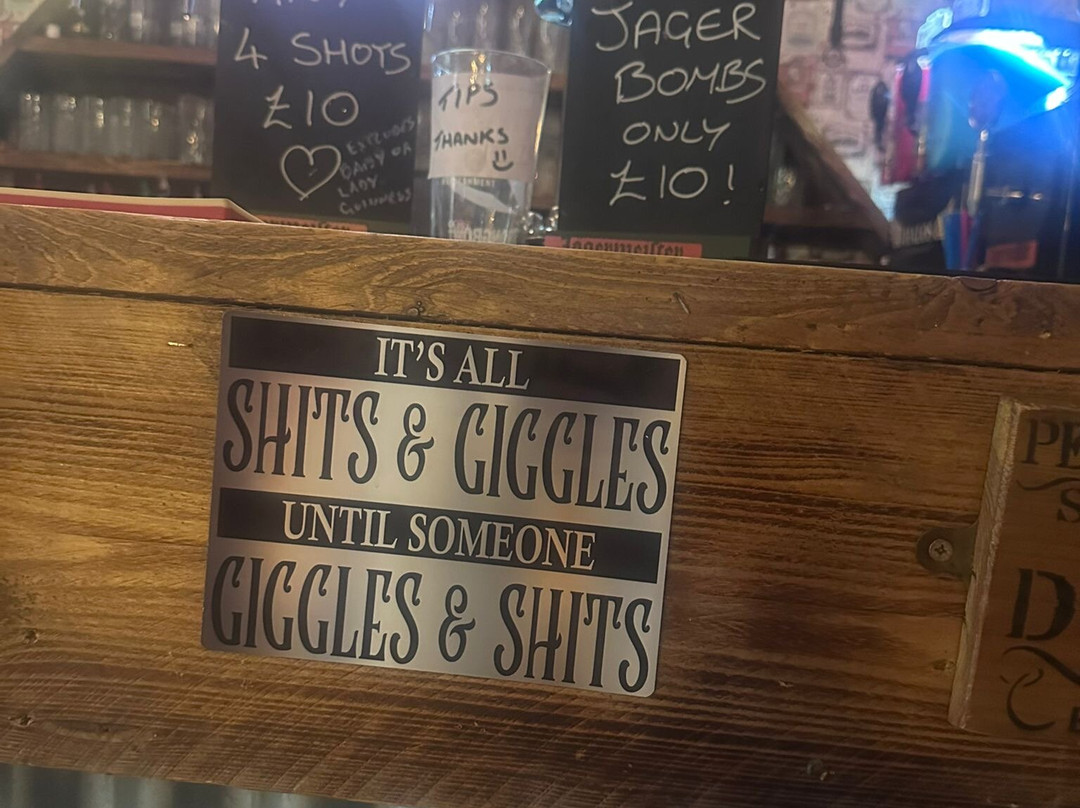 4 SHOTS
£10
EXCLUDES
BABY OR
LADY
GUINNESS
TIPS
THANKS
JAGER
BOMBS
ONLY
£10!
Jägermeister
IT'S ALL
SHITS & GIGGLES
UNTIL SOMEONE
GIGGLES & SHITS
PE
S
D